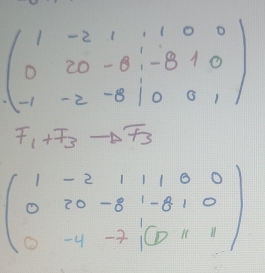 1 -2 1 | 1 0 0
0 20 -8 | -8 1 0
-1 -2 -8 | 0 0 1
F₁ + F₃ → F₃
1 -2 1 | 1 0 0
0 20 -8 | -8 1 0
0 -4 -7 | 1 " "